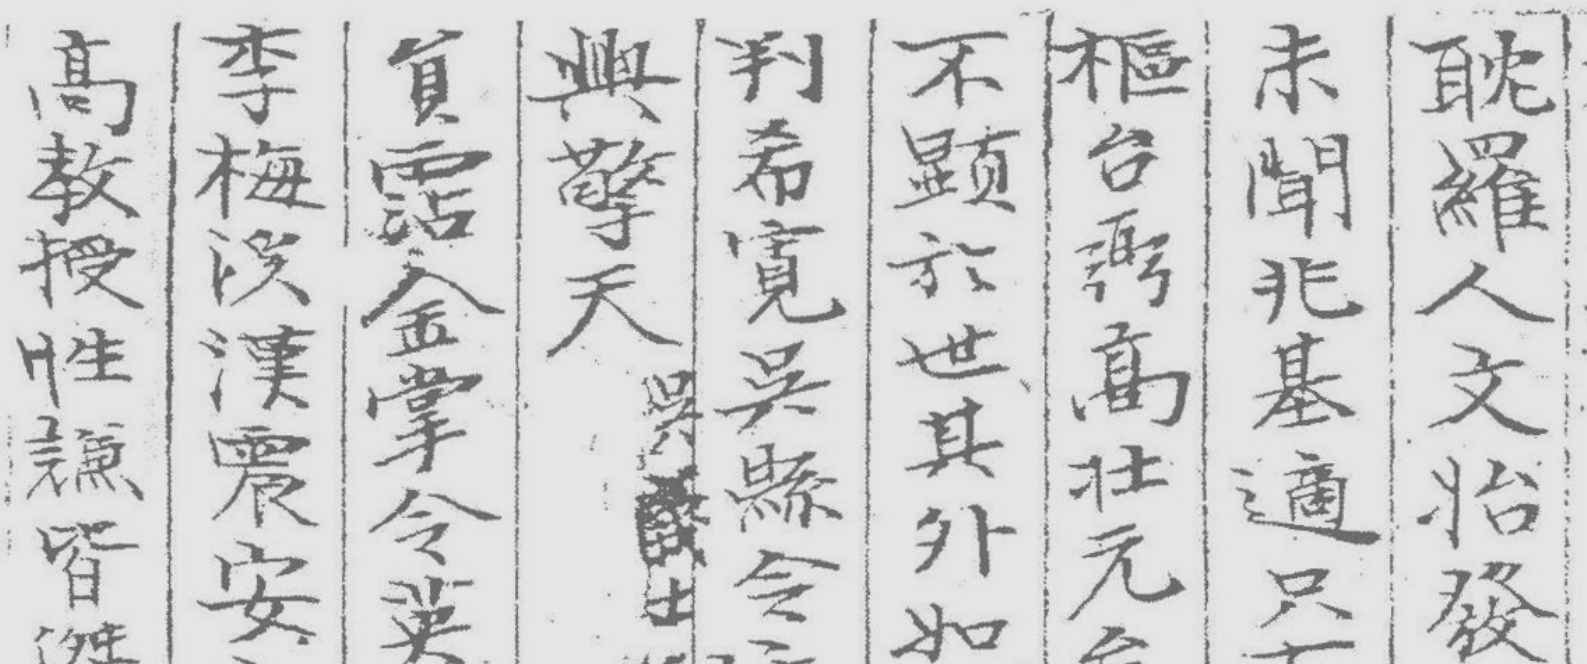 耽羅人文始發
未聞非基適只
樞台彎高壯元
不顯於世其外如
判希寬吳縣令
興擎天
吳
士
貟霑金掌令英
李梅溪漢震安
高教授性謙皆